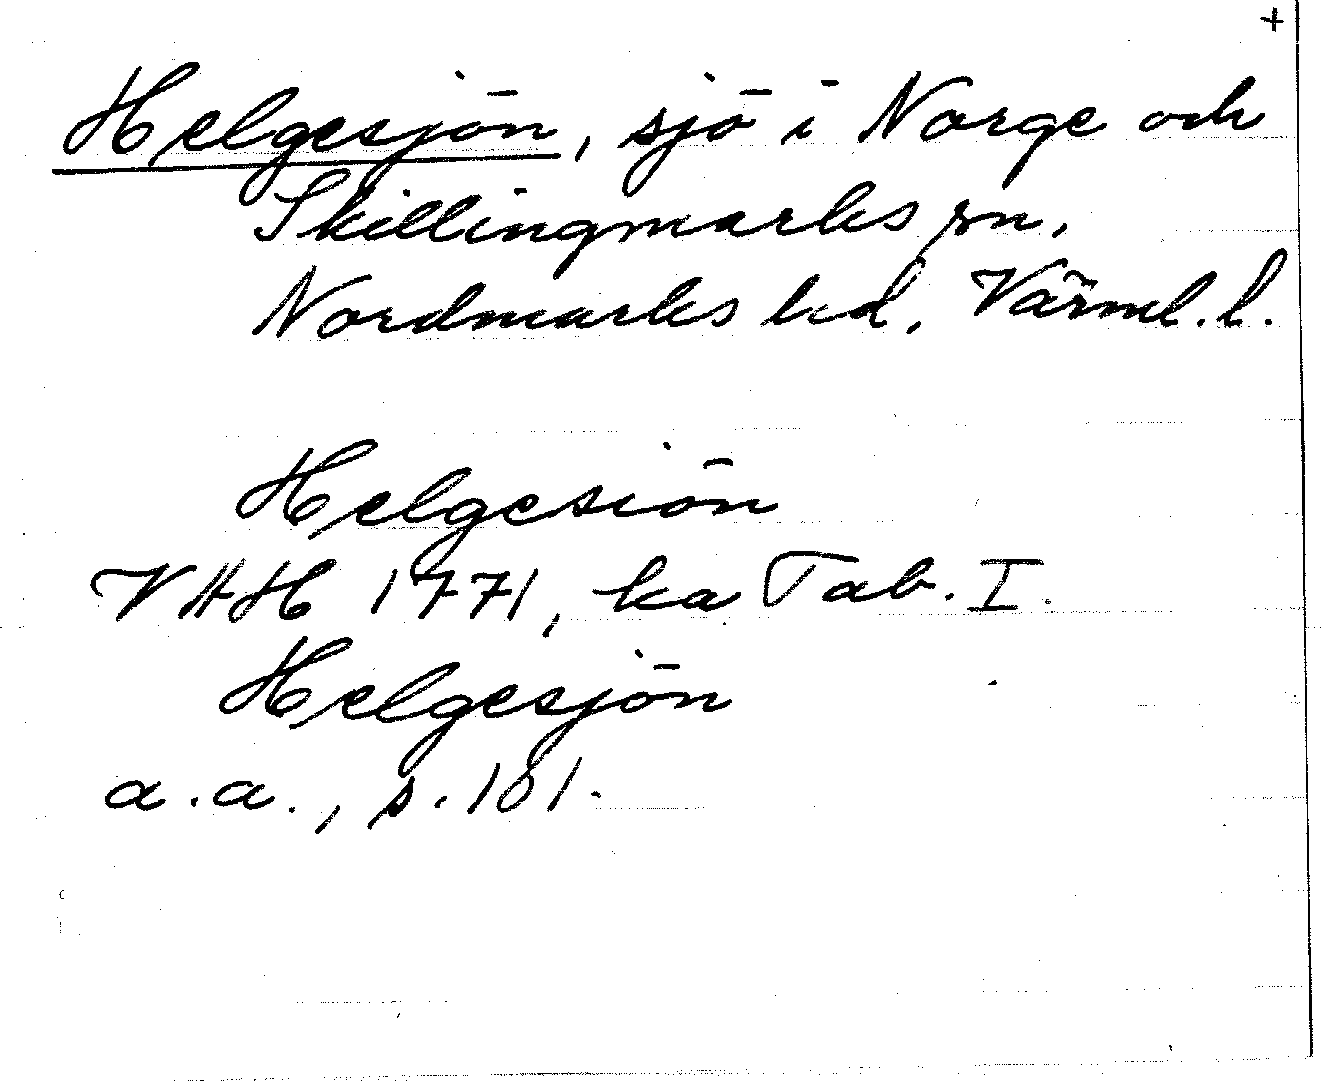 +
Helgesjön, sjö i Norge och
Skillingmarks sn,
Nordmarks hd, Värml. l.
Helgesiön
VAH 1771, ka Tab. I.
Helgesjön
a.a., s. 161.